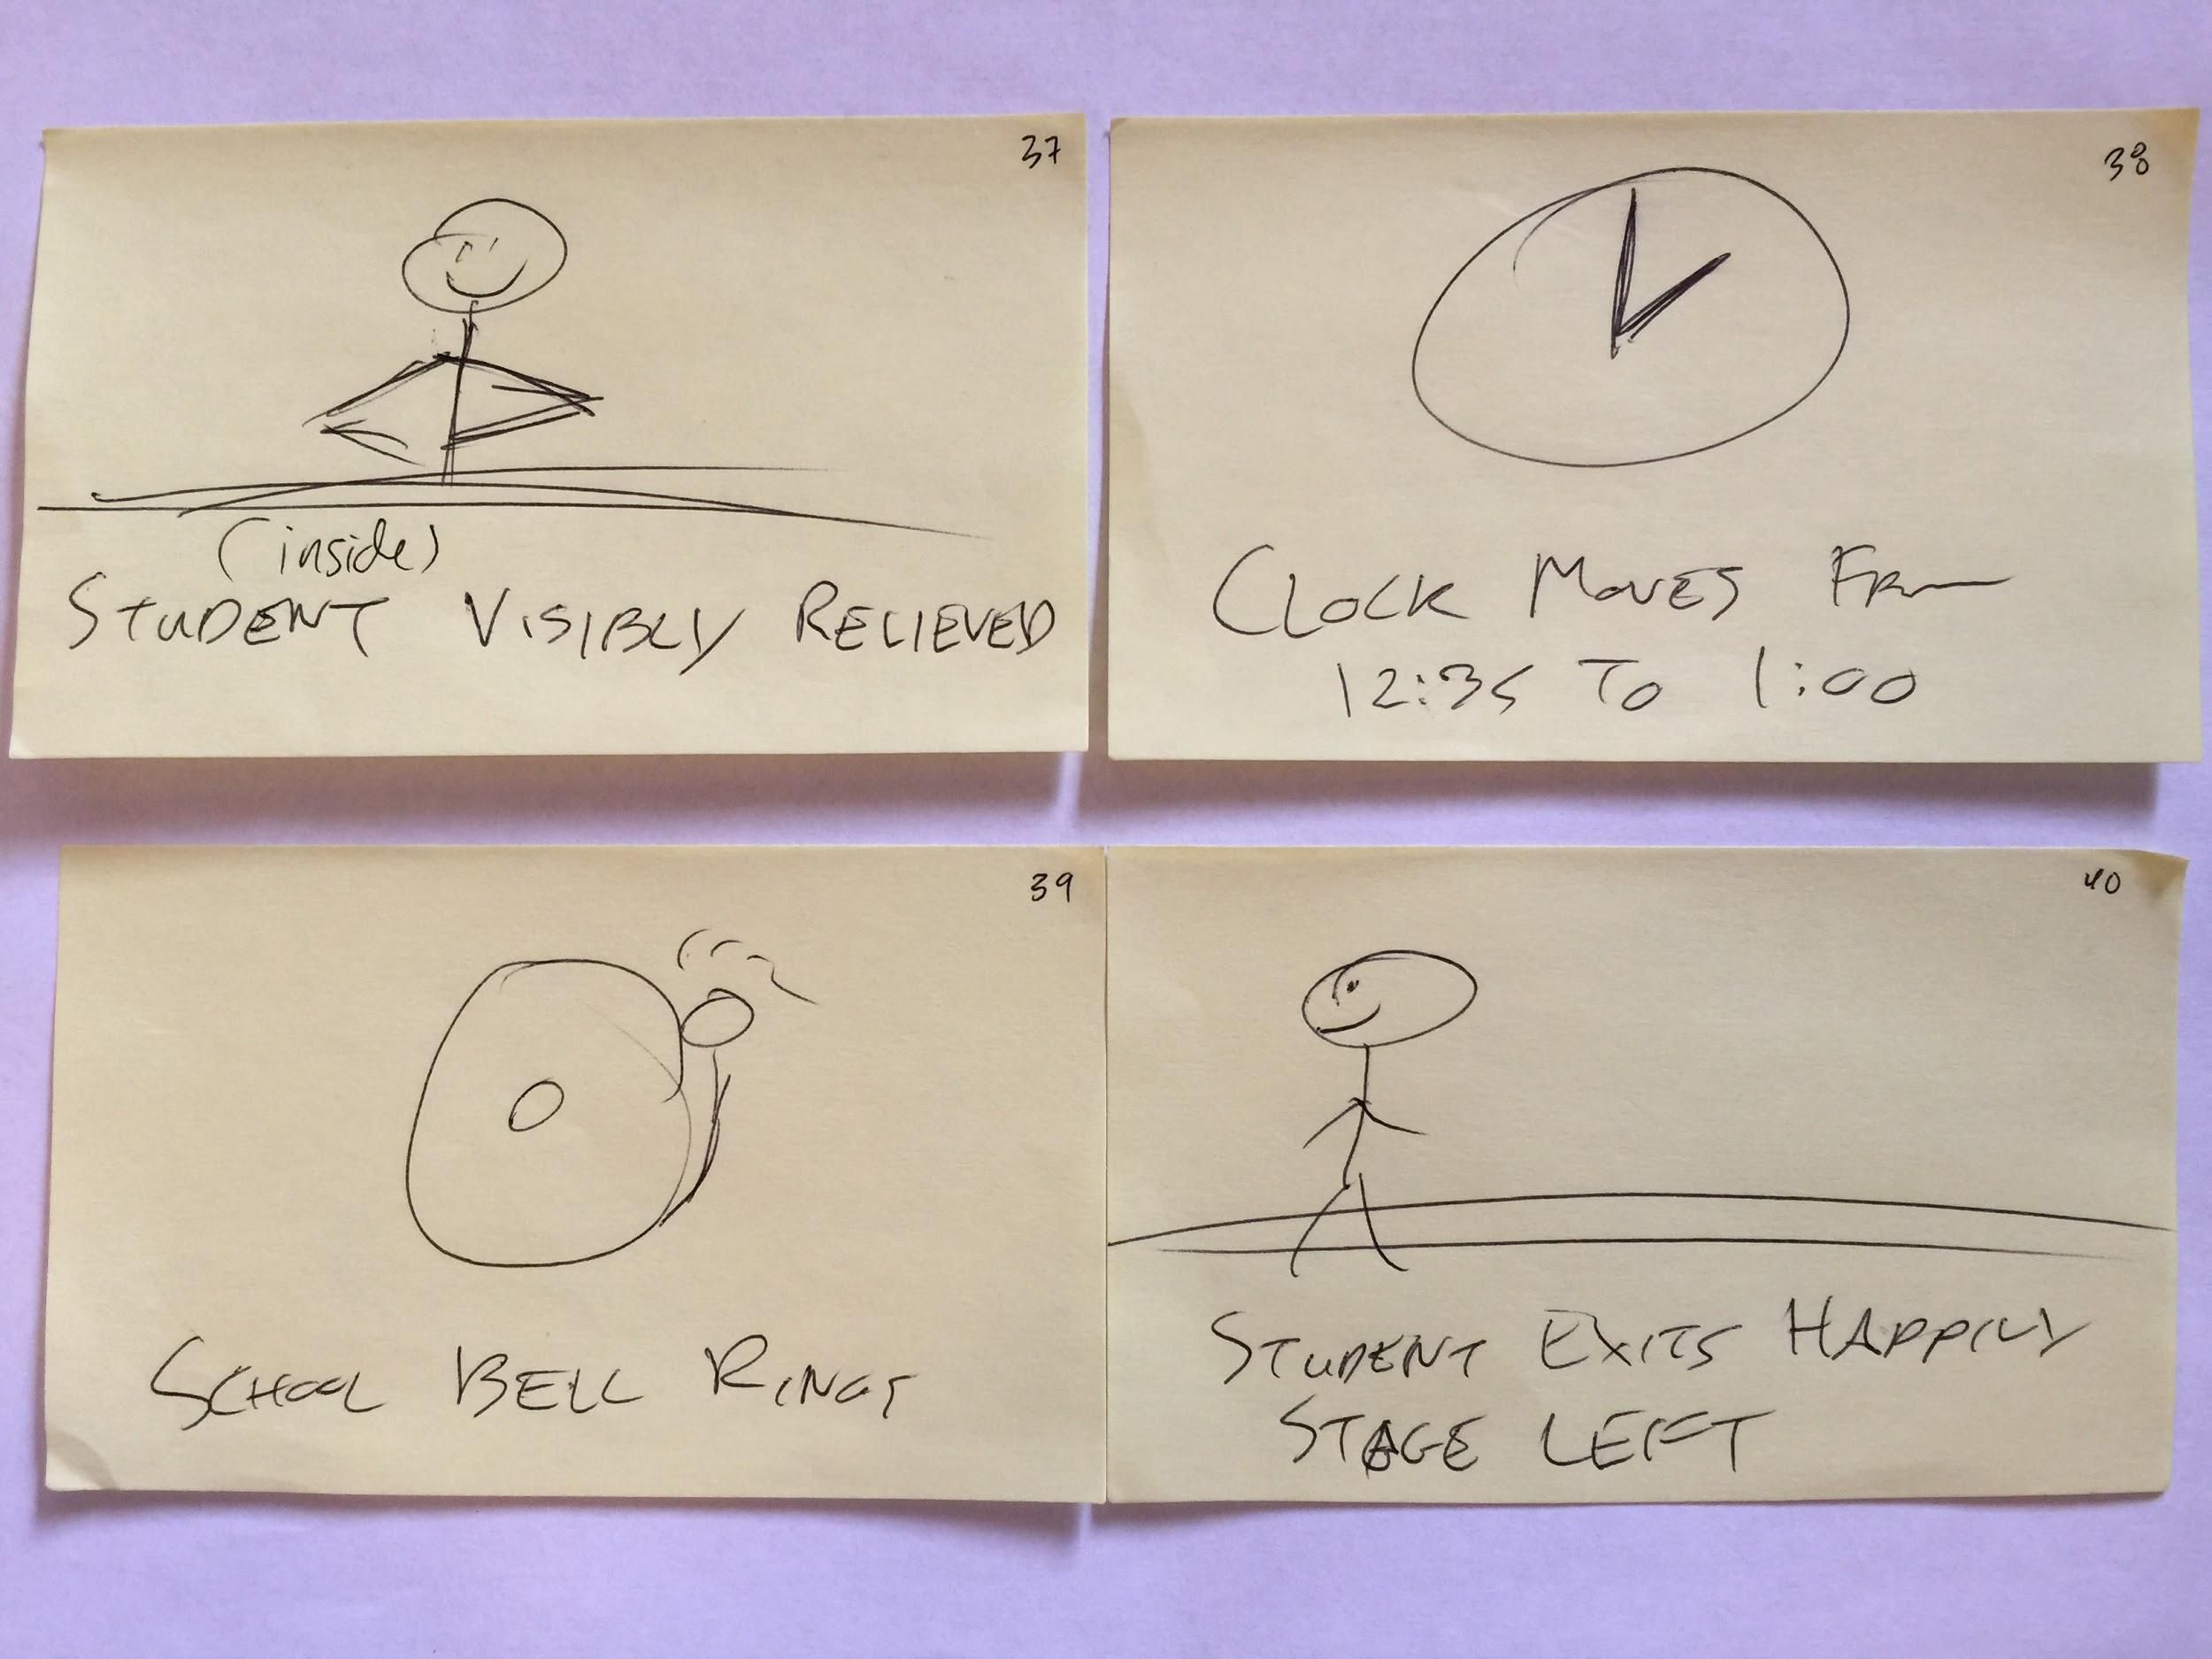 37
(inside)
STUDENT VISIBLY RELIEVED
38
CLOCK MOVES FROM
12:35 TO 1:00
39
SCHOOL BELL RINGS
40
STUDENT EXITS HAPPILY
STAGE LEFT